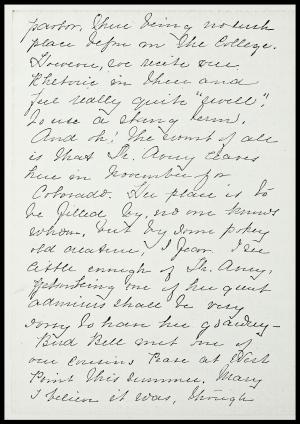 parlor, there being no such
place before on the College.
However, we recite our
Rhetoric in there and
feel really quite "swell",
to use a slang term.
And oh! the worst of all
is that Dr. Avery leaves
here in November for
Colorado. Her place is to
be filled by, no one knows
whom, but by some pokey
old creature, I fear. I see
little enough of Dr. Avery,
but being one of her great
admirers shall be very
sorry to have her go away—
Bird Bell met one of
our cousins Pease at West
Point this summer. Mary
I believe it was, though